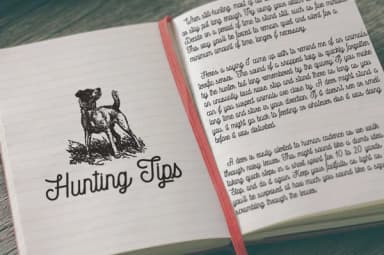 Hunting Tips
When still-hunting, most of us
or stay put long enough. Try using your watch
Decide on a period of time to stand still, such as five minutes.
This way you'll be forced to remain quiet and silent for a
minimum amount of time, longer if necessary.
Here's a saying I came up with to remind me of an animal's
senses. The sound of a snapped twig is quickly forgotten
by the hunter, but long remembered by the game. If you make
an unusually loud noise, stop and stand there as long as you
can if you suspect animals are close by. A deer might stand a
long time and stare in your direction. If it doesn't see or smell
you, it might go back to feeding or whatever else it was doing
before it was disturbed.
A deer is easily alerted to human cadence as we walk
through noisy leaves. This might sound like a dumb idea,
taking quick steps in a short spurt for 10 to 20 yards.
Stop, and do it again. Keep your footfalls as light as
you'll be surprised at how much you sound like a squirrel
scrambling through the leaves.